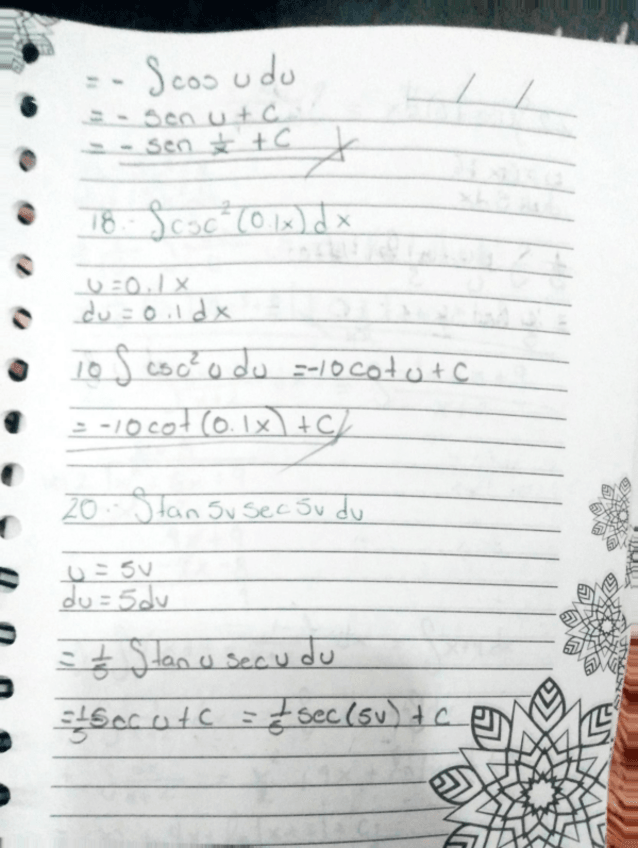 = - ∫ cos u du
= - sen u + C
= - sen 1/x + C
18.- ∫ csc² (0.1x) dx
u = 0.1x
du = 0.1 dx
10 ∫ csc² u du = -10 cot u + C
= -10 cot (0.1x) + C
20.- ∫ tan 5v sec 5v dv
u = 5v
du = 5dv
= 1/5 ∫ tan u sec u du
= 1/5 sec u + C = 1/5 sec (5v) + C